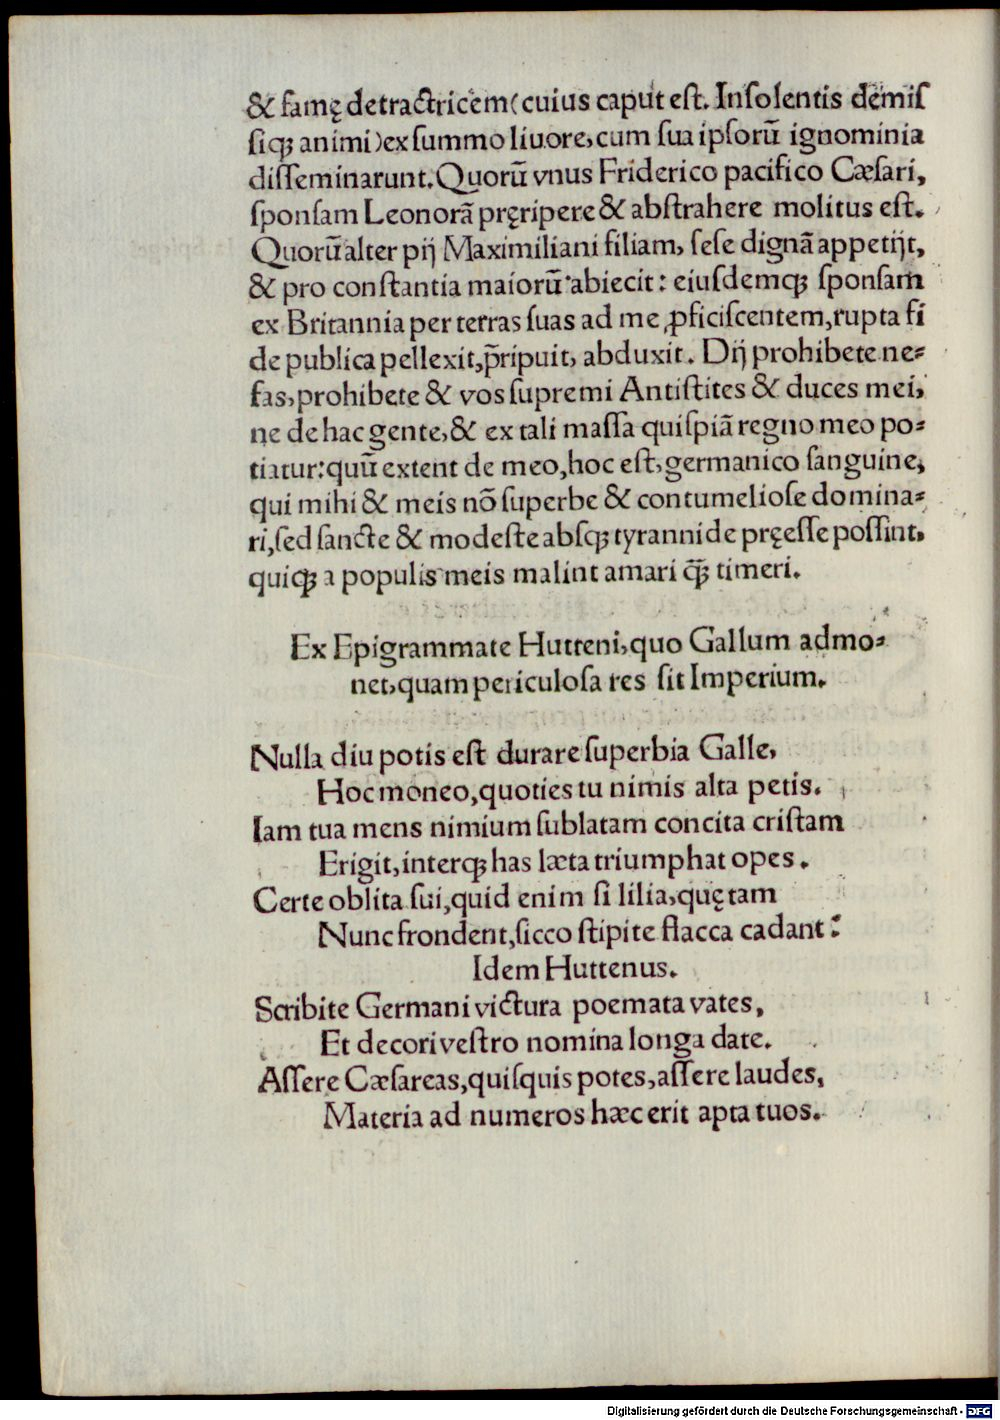 & famę detractricem (cuius caput est. Insolentis demis
siqꝫ animi) ex summo liuore, cum sua ipsorũ ignominia
disseminarunt. Quorũ vnus Friderico pacifico Cæsari,
sponsam Leonorã pręripere & abstrahere molitus est.
Quorũ alter pij Maximiliani filiam, sese dignã appetijt,
& pro constantia maiorũ abiecit: eiusdemqꝫ sponsam
ex Britannia per terras suas ad me ꝓficiscentem, rupta fi
de publica pellexit, p̄ripuit, abduxit. Dij prohibete ne⸗
fas, prohibete & vos supremi Antistites & duces mei,
ne de hac gente, & ex tali massa quispiã regno meo po⸗
tiatur: quũ extent de meo, hoc est, germanico sanguine,
qui mihi & meis nõ superbe & contumeliose domina⸗
ri, sed sancte & modeste absqꝫ tyrannide pręesse possint,
quiqꝫ a populis meis malint amari q̃ꝫ timeri.
Ex Epigrammate Hutteni, quo Gallum admo⸗
net, quam periculosa res sit Imperium.
Nulla diu potis est durare superbia Galle,
Hoc moneo, quoties tu nimis alta petis.
Iam tua mens nimium sublatam concita cristam
Erigit, interqꝫ has læta triumphat opes.
Certe oblita sui, quid enim si lilia, quę tam
Nunc frondent, sicco stipite flacca cadant?
Idem Huttenus.
Scribite Germani victura poemata vates,
Et decori vestro nomina longa date.
Assere Cæsareas, quisquis potes, assere laudes,
Materia ad numeros hæc erit apta tuos.
Digitalisierung gefördert durch die Deutsche Forschungsgemeinschaft - DFG